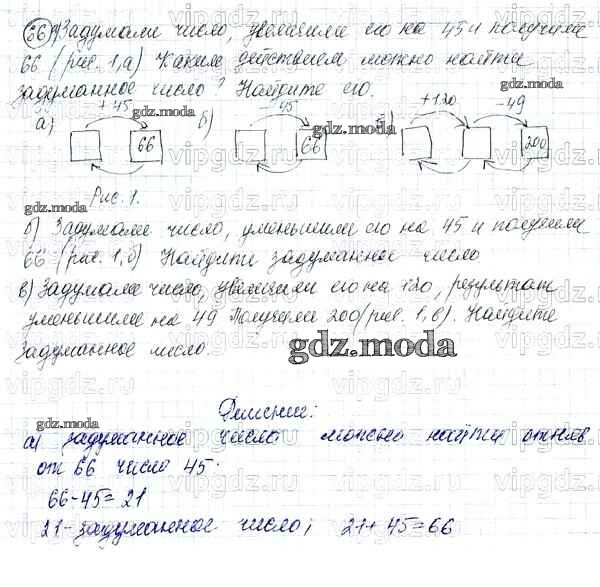 66 а) Задумали число, увеличили его на 45 и получили
66 (рис. 1, а) Каким действием можно найти
задуманное число? Найдите его.
+45 -45 +120 -49
gdz.moda
а) 66 б) 66 в) 200
gdz.moda
Рис. 1.
б) Задумали число, уменьшили его на 45 и получили
66 (рис. 1, б) Найдите задуманное число
в) Задумали число, увеличили его на 120, результат
уменьшили на 49 Получили 200 (рис. 1, в). Найдите
задуманное число.
gdz.moda
Решение:
gdz.moda
а) задуманное число можно найти отняв
от 66 число 45.
66-45=21
21- задуманное число; 21+45=66